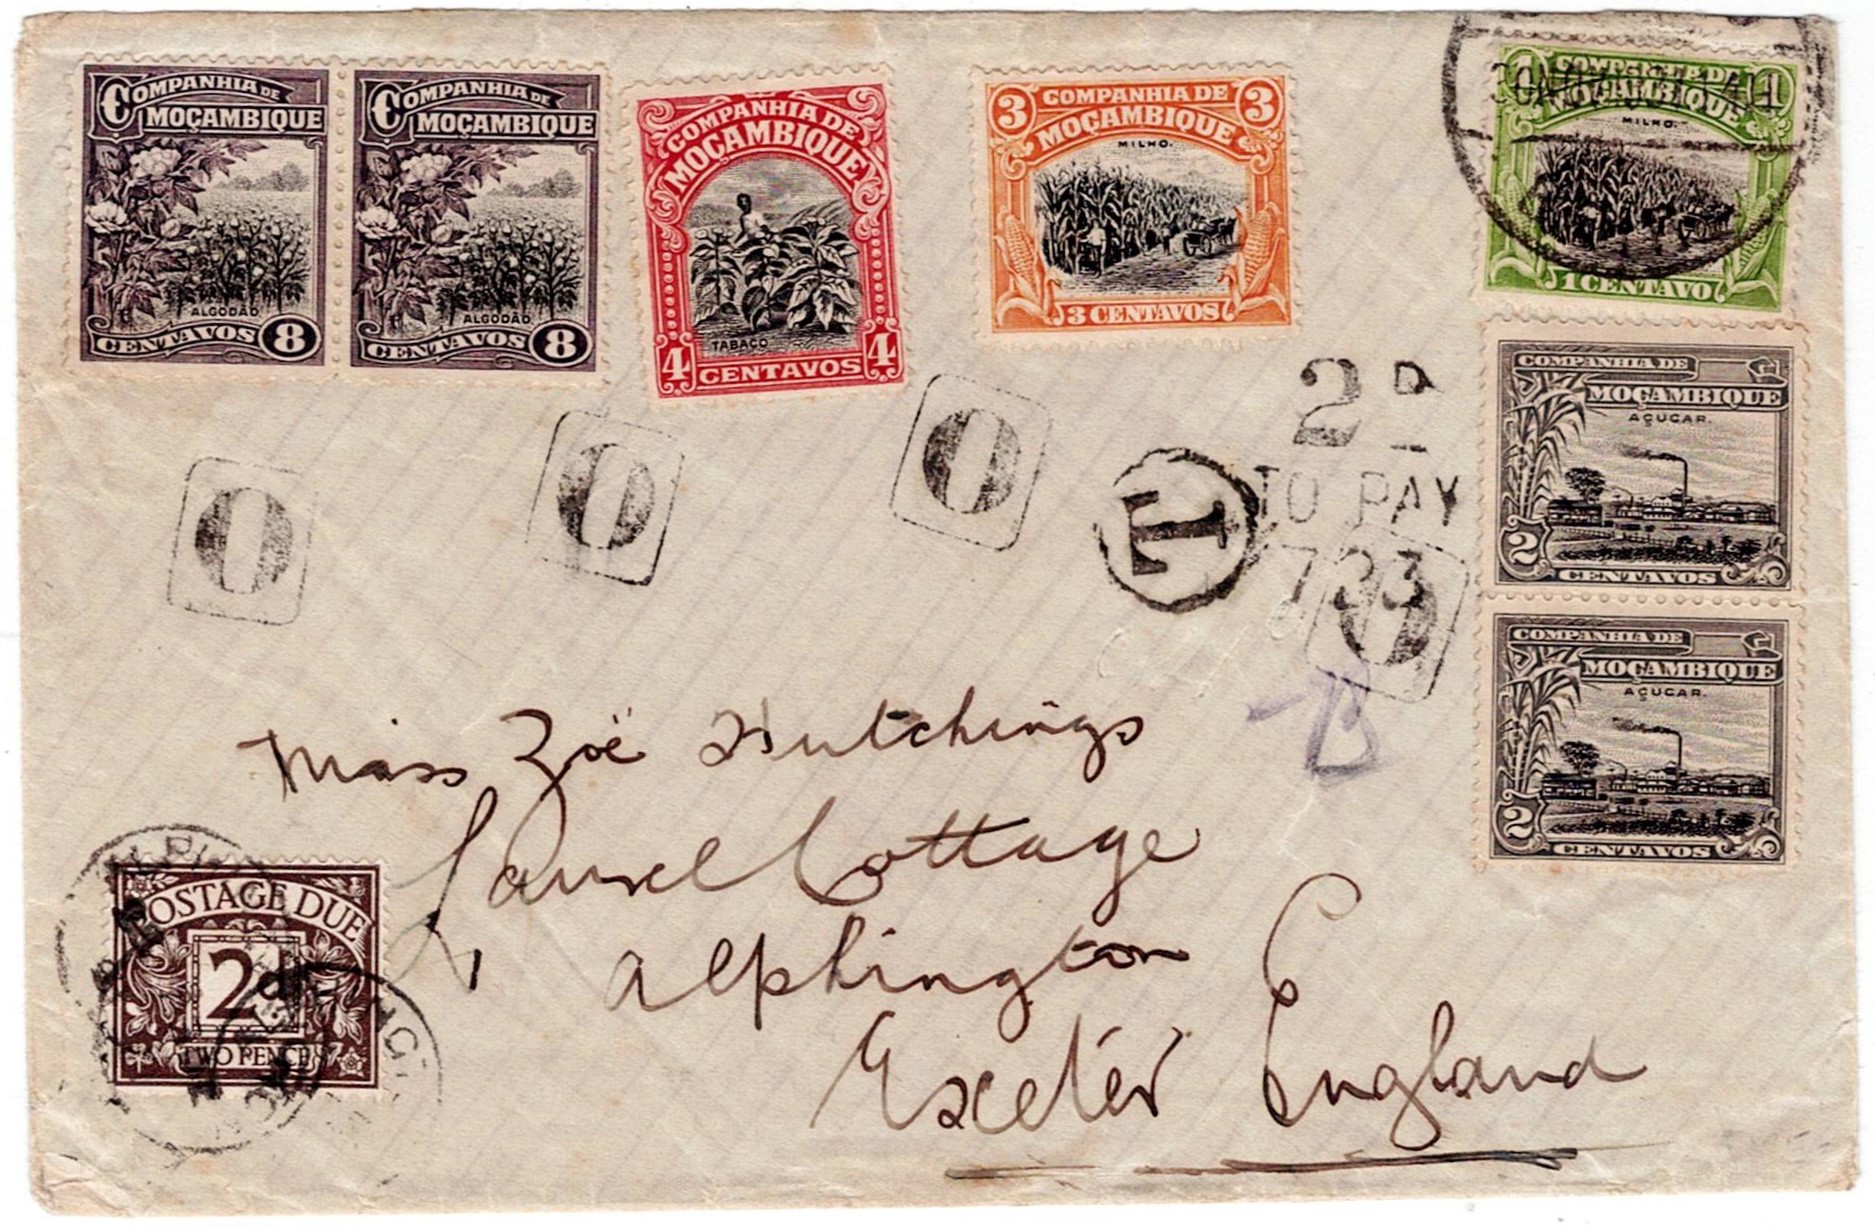 COMPANHIA DE
MOÇAMBIQUE
ALGODÃO
CENTAVOS 8
COMPANHIA DE
MOÇAMBIQUE
ALGODÃO
CENTAVOS 8
COMPANHIA DE
MOÇAMBIQUE
TABACO
4 CENTAVOS 4
3 COMPANHIA DE 3
MOÇAMBIQUE
MILHO.
3 CENTAVOS
1 COMPANHIA DE 1
MOÇAMBIQUE
MILHO.
1 CENTAVO
COMPANHIA DE
MOÇAMBIQUE
AÇUCAR.
2
CENTAVOS
COMPANHIA DE
MOÇAMBIQUE
AÇUCAR.
2
CENTAVOS
0
0
0
0
T
2D
TO PAY
733
Miss Zoë Hutchings
Laurel Cottage
Alphington
Exeter England
POSTAGE DUE
2d
TWO PENCE